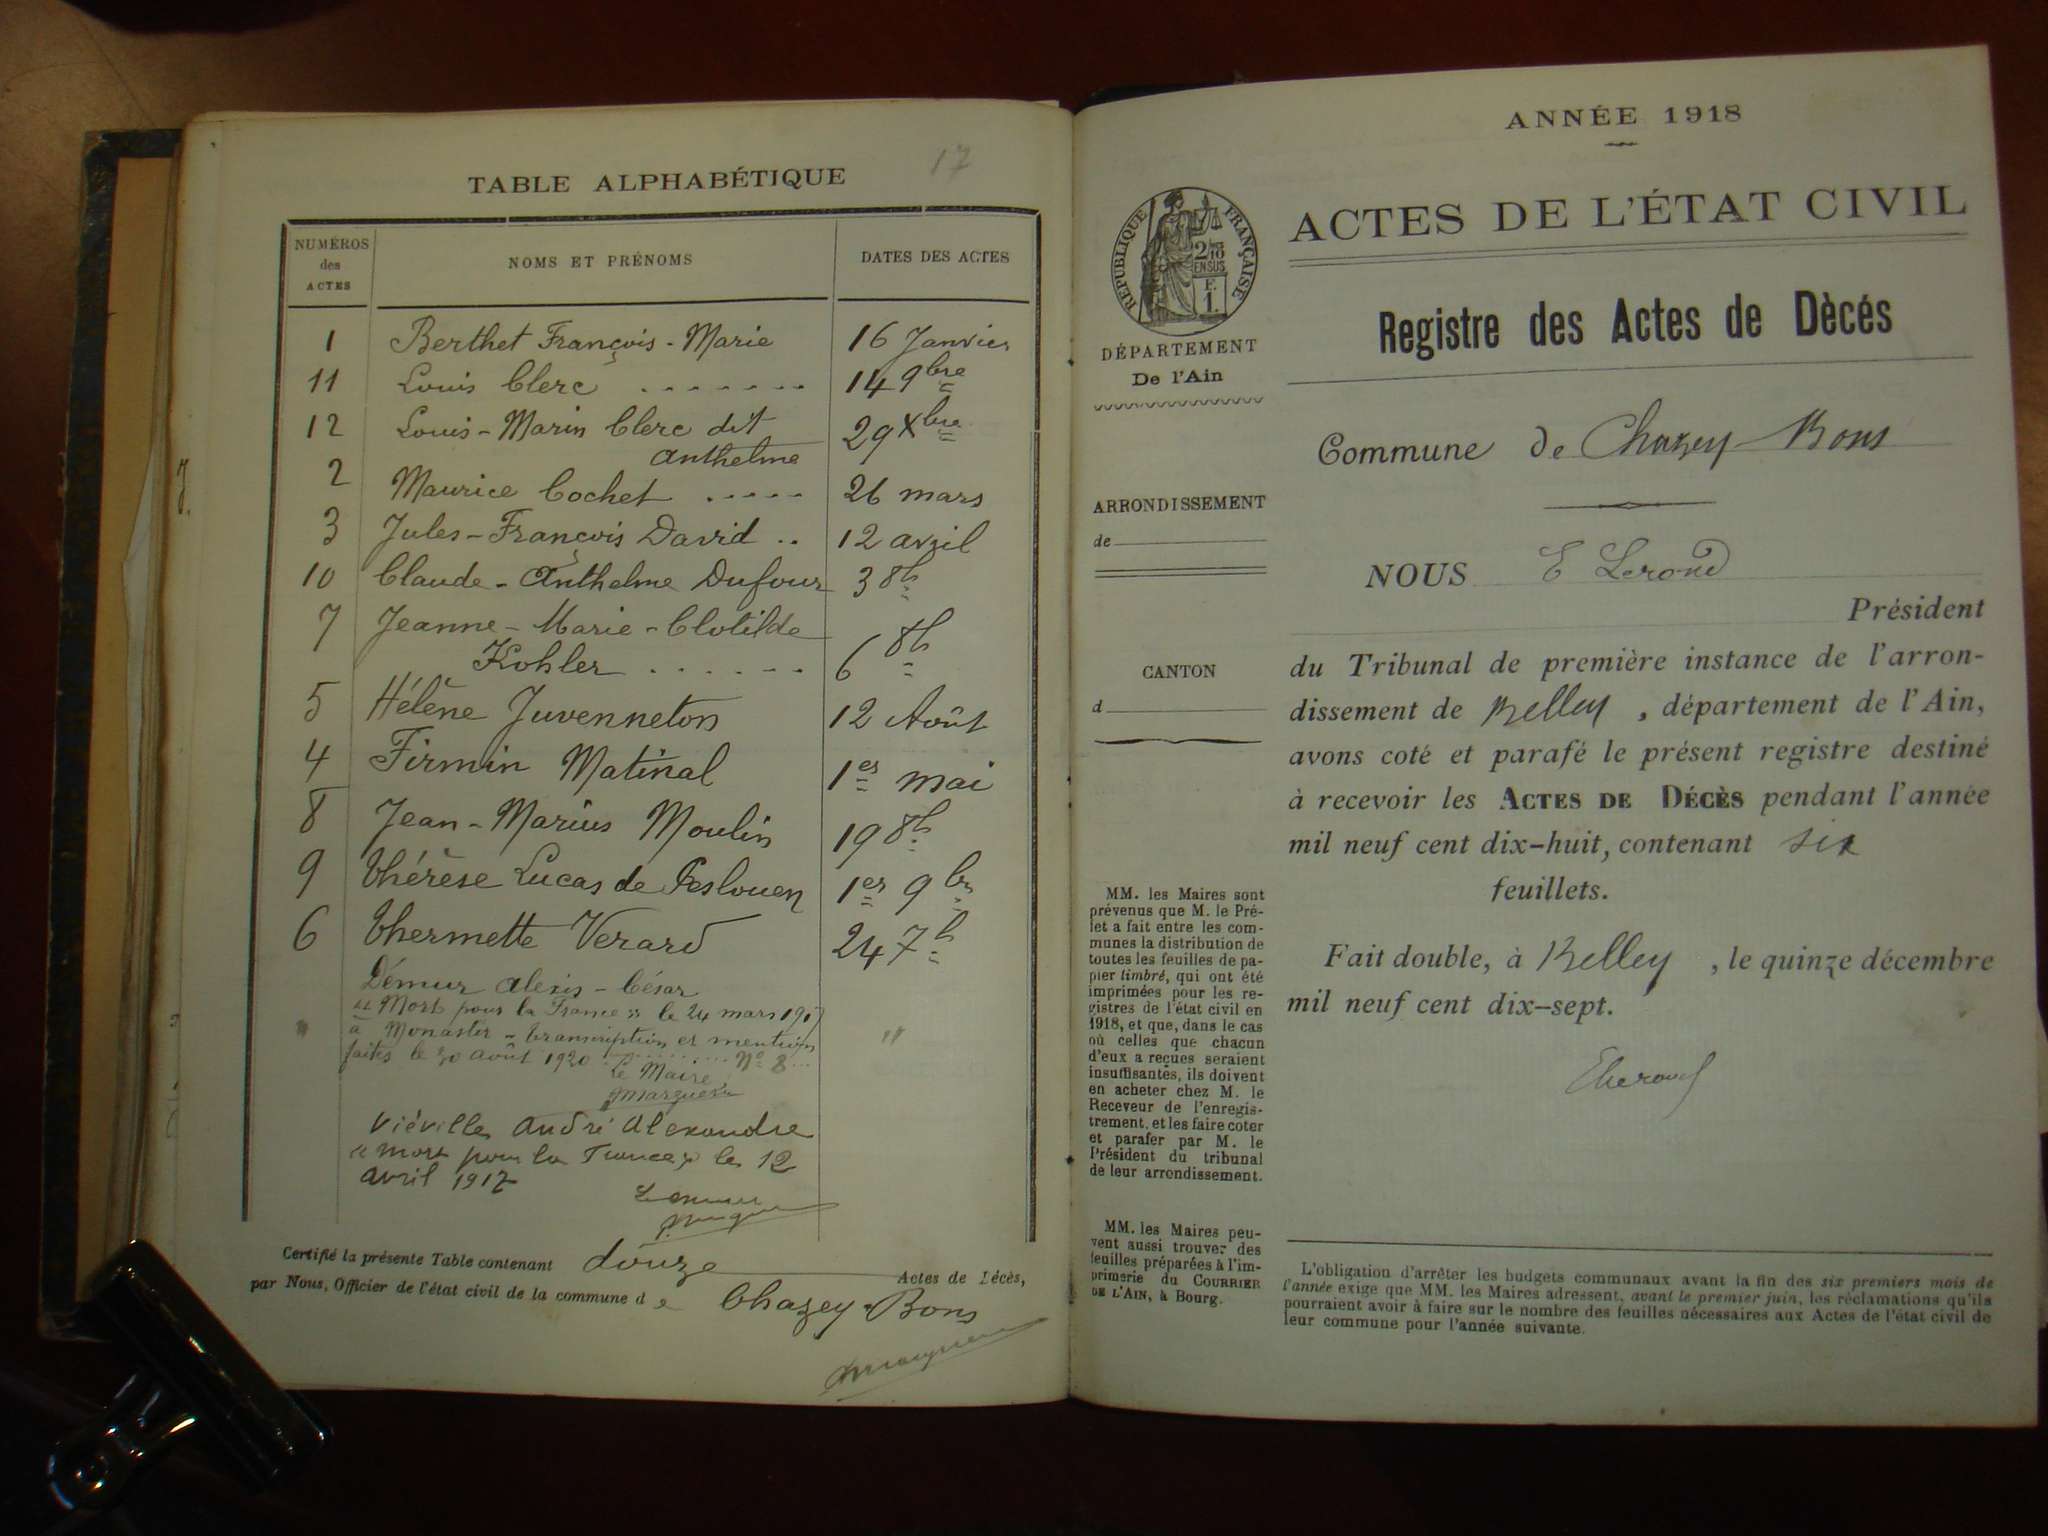 TABLE ALPHABÉTIQUE
17
NUMÉROS des ACTES
NOMS ET PRÉNOMS
DATES DES ACTES
1 Berthet François-Marie 16 Janvier
11 Louis Clerc ....... 14 9bre
12 Louis-Marin Clerc dit 29 Xbre
Anthelme
2 Maurice Cochet ..... 26 mars
3 Jules-François David .. 12 avril
10 Claude-Anthelme Dufour 3 8b
7 Jeanne-Marie-Clotilde
Kohler ...... 6 8b
5 Hélène Juvenneton 12 Août
4 Firmin Matinal 1er mai
8 Jean-Marius Moulin 19 8b
9 Thérèse Lucas de Peslouen 1er 9br
6 Thermette Verard 24 7b
Démur Alexis-César
"Mort pour la France" le 24 mars 1917
à Monastir - transcription et mention
faites le 30 Août 1920 ........... No 8 ...
Le Maire
Viéville André Alexandre
"mort pour la France" le 12
avril 1917
Certifié la présente Table contenant douze Actes de Décès,
par Nous, Officier de l'état civil de la commune de Chazey-Bons
ANNÉE 1918
ACTES DE L'ÉTAT CIVIL
RÉPUBLIQUE FRANÇAISE
2/10
EN SUS
F.
1.
DÉPARTEMENT
De l'Ain
Registre des Actes de Dècés
Commune de Chazey-Bons
ARRONDISSEMENT
de
NOUS E Lerond
Président
CANTON
d
du Tribunal de première instance de l'arron-
dissement de Belley, département de l'Ain,
avons coté et parafé le présent registre destiné
à recevoir les ACTES DE DÉCÈS pendant l'année
mil neuf cent dix-huit, contenant six
feuillets.
Fait double, à Belley, le quinze décembre
mil neuf cent dix-sept.
MM. les Maires sont
prévenus que M. le Pré-
fet a fait entre les com-
munes la distribution de
toutes les feuilles de pa-
pier timbré, qui ont été
imprimées pour les re-
gistres de l'état civil en
1918, et que, dans le cas
où celles que chacun
d'eux a reçues seraient
insuffisantes, ils doivent
en acheter chez M. le
Receveur de l'enregis-
trement, et les faire coter
et parafer par M. le
Président du tribunal
de leur arrondissement.
MM. les Maires peu-
vent aussi trouver des
feuilles préparées à l'im-
primerie du COURRIER
DE L'AIN, à Bourg.
L'obligation d'arrêter les budgets communaux avant la fin des six premiers mois de
l'année exige que MM. les Maires adressent, avant le premier juin, les réclamations qu'ils
pourraient avoir à faire sur le nombre des feuilles nécessaires aux Actes de l'état civil de
leur commune pour l'année suivante.